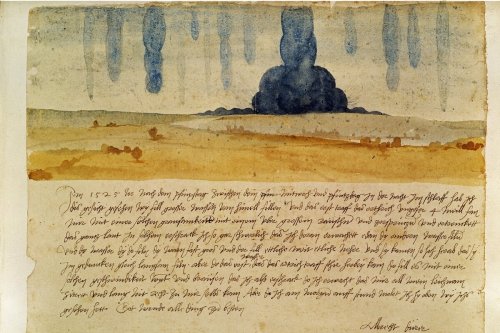 Im 1525 Jor nach dem pfinxstag zwischen dem mitwoch und pfintzdag in der nacht im schlaff hab ich
dis gesicht gesehen wy fill grosser wassern vom himell fillen Und das erst traff das erthrich ungefer 4 meill fan
mir mit einer solchen grausamkeitt mit einem uber grossem raüschn und zersprützn und ertrenckett
das gantz lant In solchem erschrack ich so gar schwerlich das ich doran erwachett e dan dy andern wasser filn
Und dy wasser dy do filn dy warn fast gros und der fill ettliche weit etliche neher und sy kamen so hoch herab das sy
im gedancken gleich langsam filn aber do das erst wasser das das ertrich traff schir herbey kam do fill es mit einer
solchen geschwindikeit wynt und braüsen das ich also erschrack do ich erwacht das mir all mein leichnam
zitrett und lang nit recht zu mir selbs kam Aber do ich am morgn auff stund molet ich hy oben wy ichs
gesehen hett Got wende alle ding zu besten
Albrecht dürer